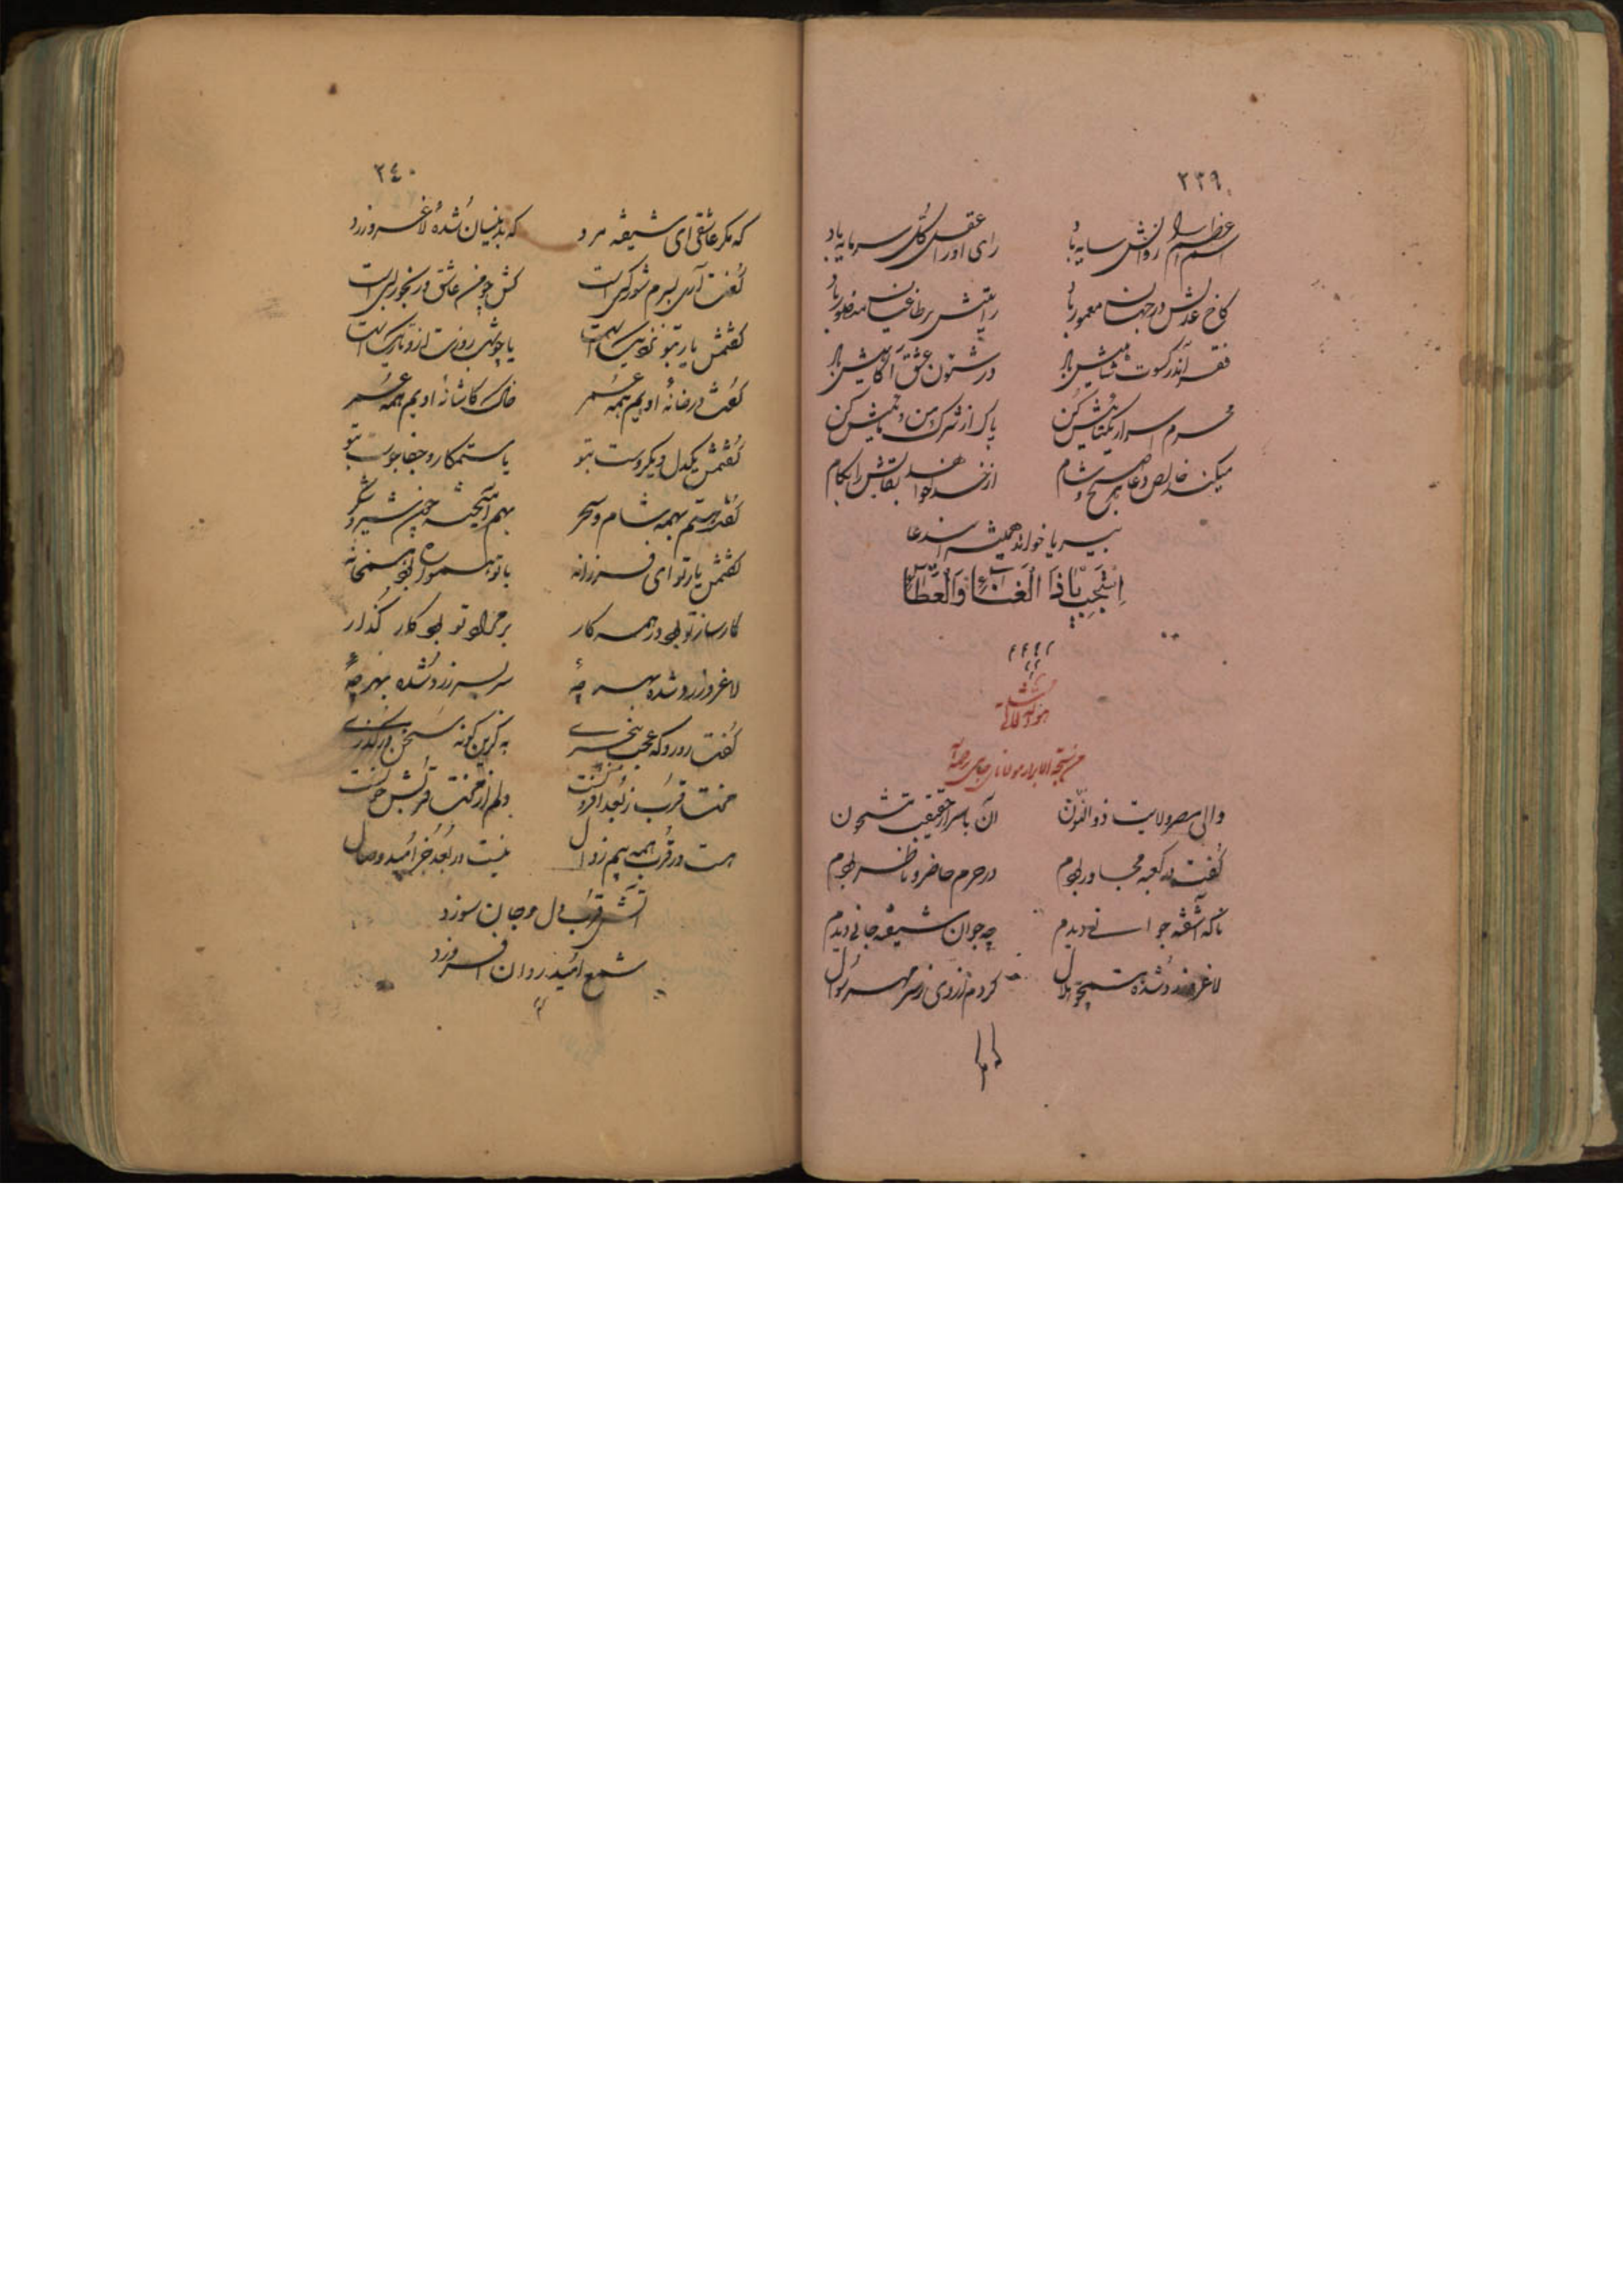 ٢٣٩
اسم اعظم را روانش سایه باد رای او را عقل کل سرمایه باد
کاخ عدلش در جهان معمور باد رایتش بر طاغیان منصور باد
فقر اندر کسوت شاهیش باد در شئون عشق آگاهیش باد
محرم اسرار یکتاییش کن پاک از شرک من و ماییش کن
میکند خالص دعا هر صبح و شام از خدا خواهد بقایش را بکام
بیریا خواند همیشه این دعا
اِستَجِب یا ذَا الغَناءِ وَالعَطا
من نتیجة الابرار مولانای جامی رحمه الله
والی مصر ولایت ذوالنون آن باسرار حقیقت مشحون
گفت در کعبه مجاور بودم در حرم حاضر و ناظر بودم
ناگه آشفته جوانی دیدم چه جوان شیفته جانی دیدم
لاغر و زرد شده همچو هلال کردم از وی ز سر مهر سؤال
٢٤٠
که مگر عاشقی ای شیفته مرد که بدینسان شدهٔ لاغر و زرد
گفت آری بسرم شور کسی است کش چو من عاشق رنجور بسی است
گفتمش یار بتو نزدیکست یا چو شب روزت ازو تاریکست
گفت در خانهٔ اویم همه عمر خاک کاشانهٔ اویم همه عمر
گفتمش یکدل و یکروست بتو یا ستمکار و جفاجوست بتو
گفت هستیم بهمه شام و سحر بهم آمیخته چون شیر و شکر
گفتمش یار تو ای فرزانه با تو همواره بود همخانه
کارساز تو بود در همه کار بر مراد تو بود کار گذار
لاغر و زرد شده بهر چهٔ سر بسر زرد شده بهر چهٔ
گفت رو رو که عجب بیخبری به کزین گونه سخن درگذری
محنت قرب ز بعد افزونست دلم از محنت قربش خونست
هست در قرب همه بیم زوال نیست در بعد جز امید وصال
آتش قرب دل و جان سوزد
شمع امید روان افروزد